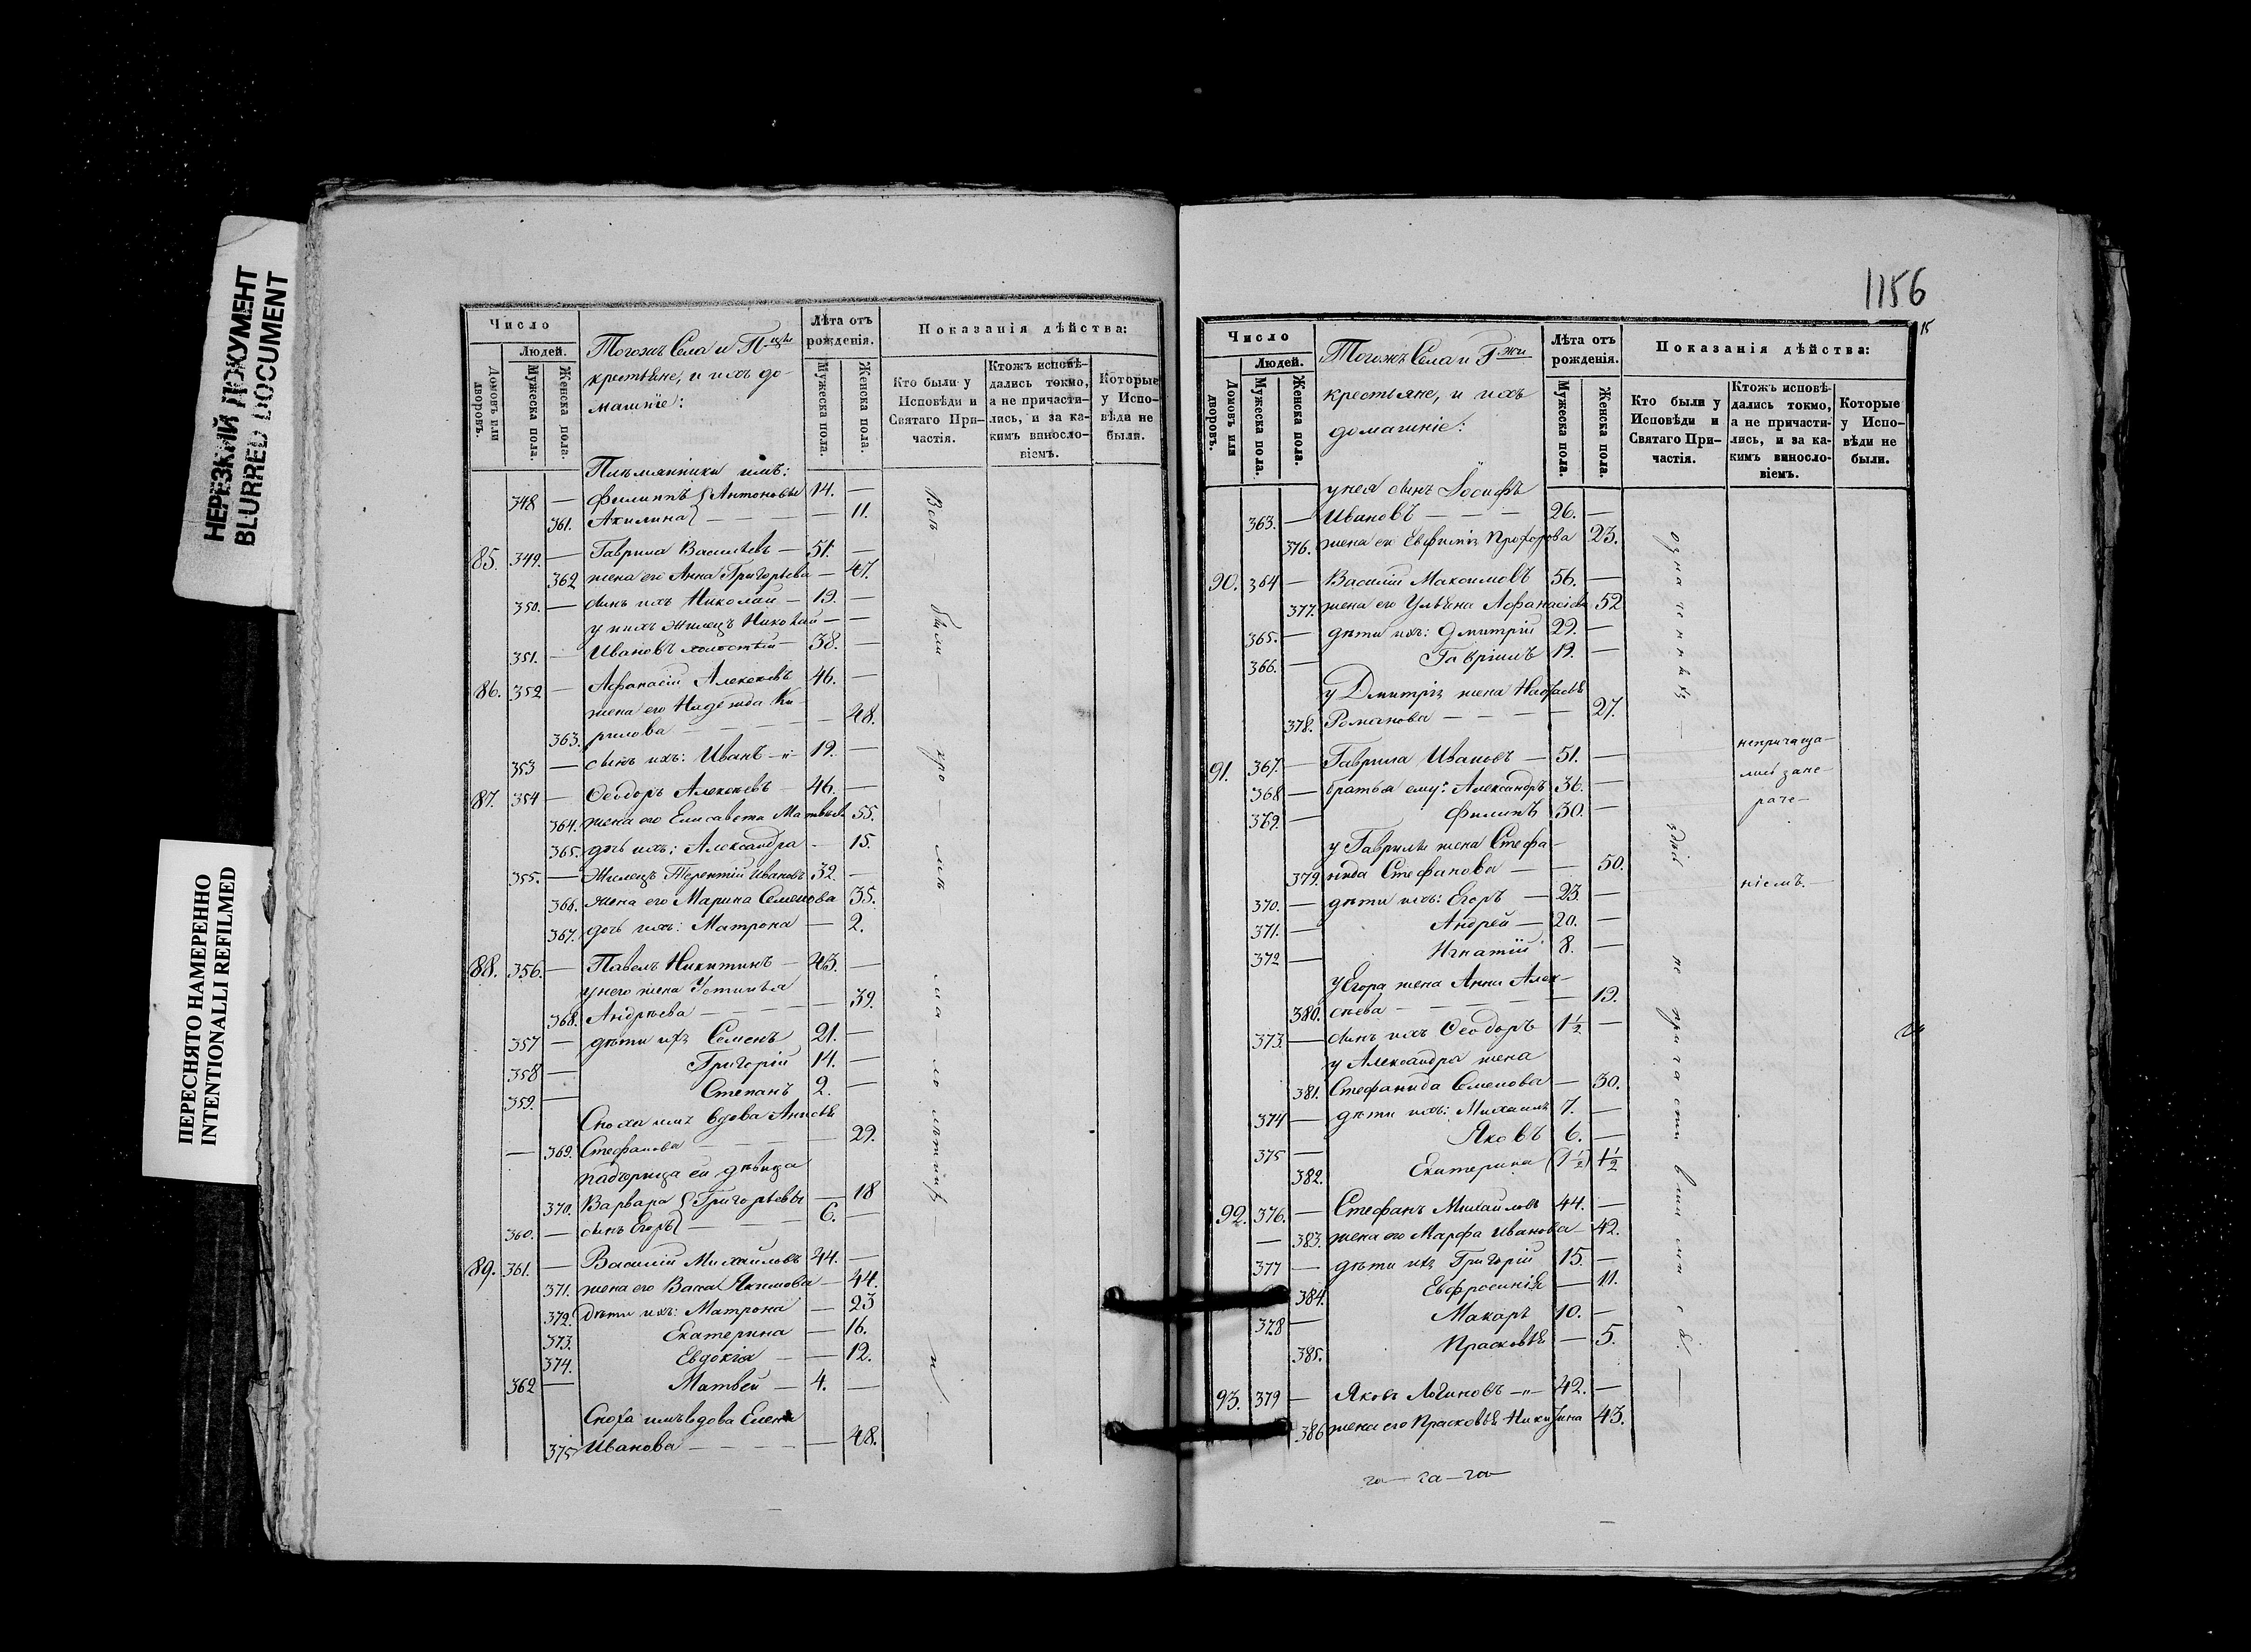 НЕРЕЗКИЙ ДОКУМЕНТ
BLURRED DOCUMENT
ПЕРЕСНЯТО НАМЕРЕННО
INTENTIONALLI REFILMED
Число
Людей.
Домовъ или дворовъ.
Мужеска пола.
Женска пола.
Тогожъ Села и
крестьяне, и ихъ до-
машніе:
Лѣта отъ рожденія.
Мужеска пола.
Женска пола.
Показанія дѣйства:
Кто были у Исповѣди и Святаго При-частія.
Ктожъ исповѣ-дались токмо, а не причасти-лись, и за ка-кимъ винносло-віемъ.
Которые у Испо-вѣди не были.
Племянники имъ:
348 — Филиппъ } Антоновы 14. —
361. Акилина } — 11.
85. 349. — Гаврила Васильевъ — 51. —
362 жена его Анна Григорьева — 47.
350. — сынъ ихъ Николай — 19. —
у нихъ жилецъ Николай — —
351. — Ивановъ холостый — 38. —
86. 352 — Афанасій Алексѣевъ 46. —
жена его Надежда Ки-
363. рилова — 48.
353 — сынъ ихъ: Иванъ 19. —
87. 354 — Ѳеодоръ Алексѣевъ 46. —
364. жена его Елисавета Матвѣева 55.
365. дочь ихъ: Александра — 15.
355. — Жилецъ Терентій Ивановъ 32. —
366. жена его Марина Семенова 35.
367. дочь ихъ: Матрона — 2.
88. 356. — Павелъ Никитинъ — 43. —
у него жена Устинья
368. Андрѣева — 39.
357 — дѣти ихъ Семенъ 21. —
358 — Григорій 14. —
359. — Степанъ 2. —
Сноха имъ вдова
— 369. Стефанова — 29.
падчерица ей дѣвица
370. Варвара } Григорьевы — 18
360. — сынъ Егоръ } 6. —
89. 361. — Василій Михайловъ 44. —
371. жена его Васса Якимова — 44.
372. дѣти ихъ: Матрона — 23
373. Екатерина — 16.
374. Евдокія — 12.
362 — Матвей — 4. —
Сноха имъ вдова Елена
375 Иванова — 48.
Всѣ — были —
1156
15
Число
Людей.
Домовъ или дворовъ.
Мужеска пола.
Женска пола.
Тогожъ Села и Г-жи
крестьяне, и ихъ
домашніе:
Лѣта отъ рожденія.
Мужеска пола.
Женска пола.
Показанія дѣйства:
Кто были у Исповѣди и Святаго При-частія.
Ктожъ исповѣ-дались токмо, а не причасти-лись, и за ка-кимъ винносло-віемъ.
Которые у Испо-вѣди не были.
у нея сынъ Іосифъ
363. — Ивановъ — 26. —
376. жена его Евфимія Прохорова 23.
90. 364 — Василій Максимовъ 56. —
377. жена его Ульяна Афанасіева 52
365. — дѣти ихъ: Дмитрій 29. —
366. — Гавріилъ 19. —
у Дмитрія жена Настасья
378. Романова — 27.
91. 367. — Гаврила Ивановъ — 51. —
368 — братья ему: Александръ 36. —
369. — Филипъ 30. —
у Гаврилы жена Стефа-
379. нида Стефанова — 50.
370. — дѣти ихъ: Егоръ — 23. —
371. — Андрей — 20. —
372 — Игнатій 8. —
у Егора жена Анна Алек-
380. сѣева — 19.
373. — сынъ ихъ Ѳеодоръ 1½ —
у Александра жена
381. Стефанида Семенова — 30.
374 — дѣти ихъ: Михаилъ 7. —
375 — Яковъ 6. —
382. Екатерина (1½) 1½
92. 376. — Стефанъ Михайловъ 44. —
— 383. жена его Марфа Иванова — 42.
377 — дѣти ихъ Григорій 15. —
384. Евфросинія — 11.
378 — Макаръ 10. —
385. Прасковья — 5.
93. 379 — Яковъ Логиновъ 42. —
386 жена его Прасковья Никитина 43.
непричаща-
лись зане-
раче-
ніемъ. —